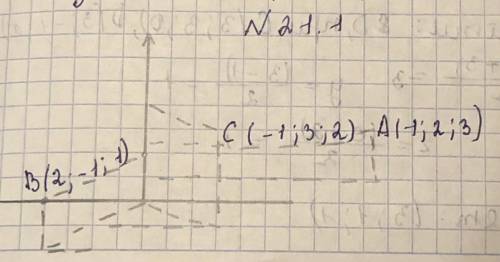 N 21.1
C (-1; 3; 2) A (-1; 2; 3)
B (2; -1; 1)